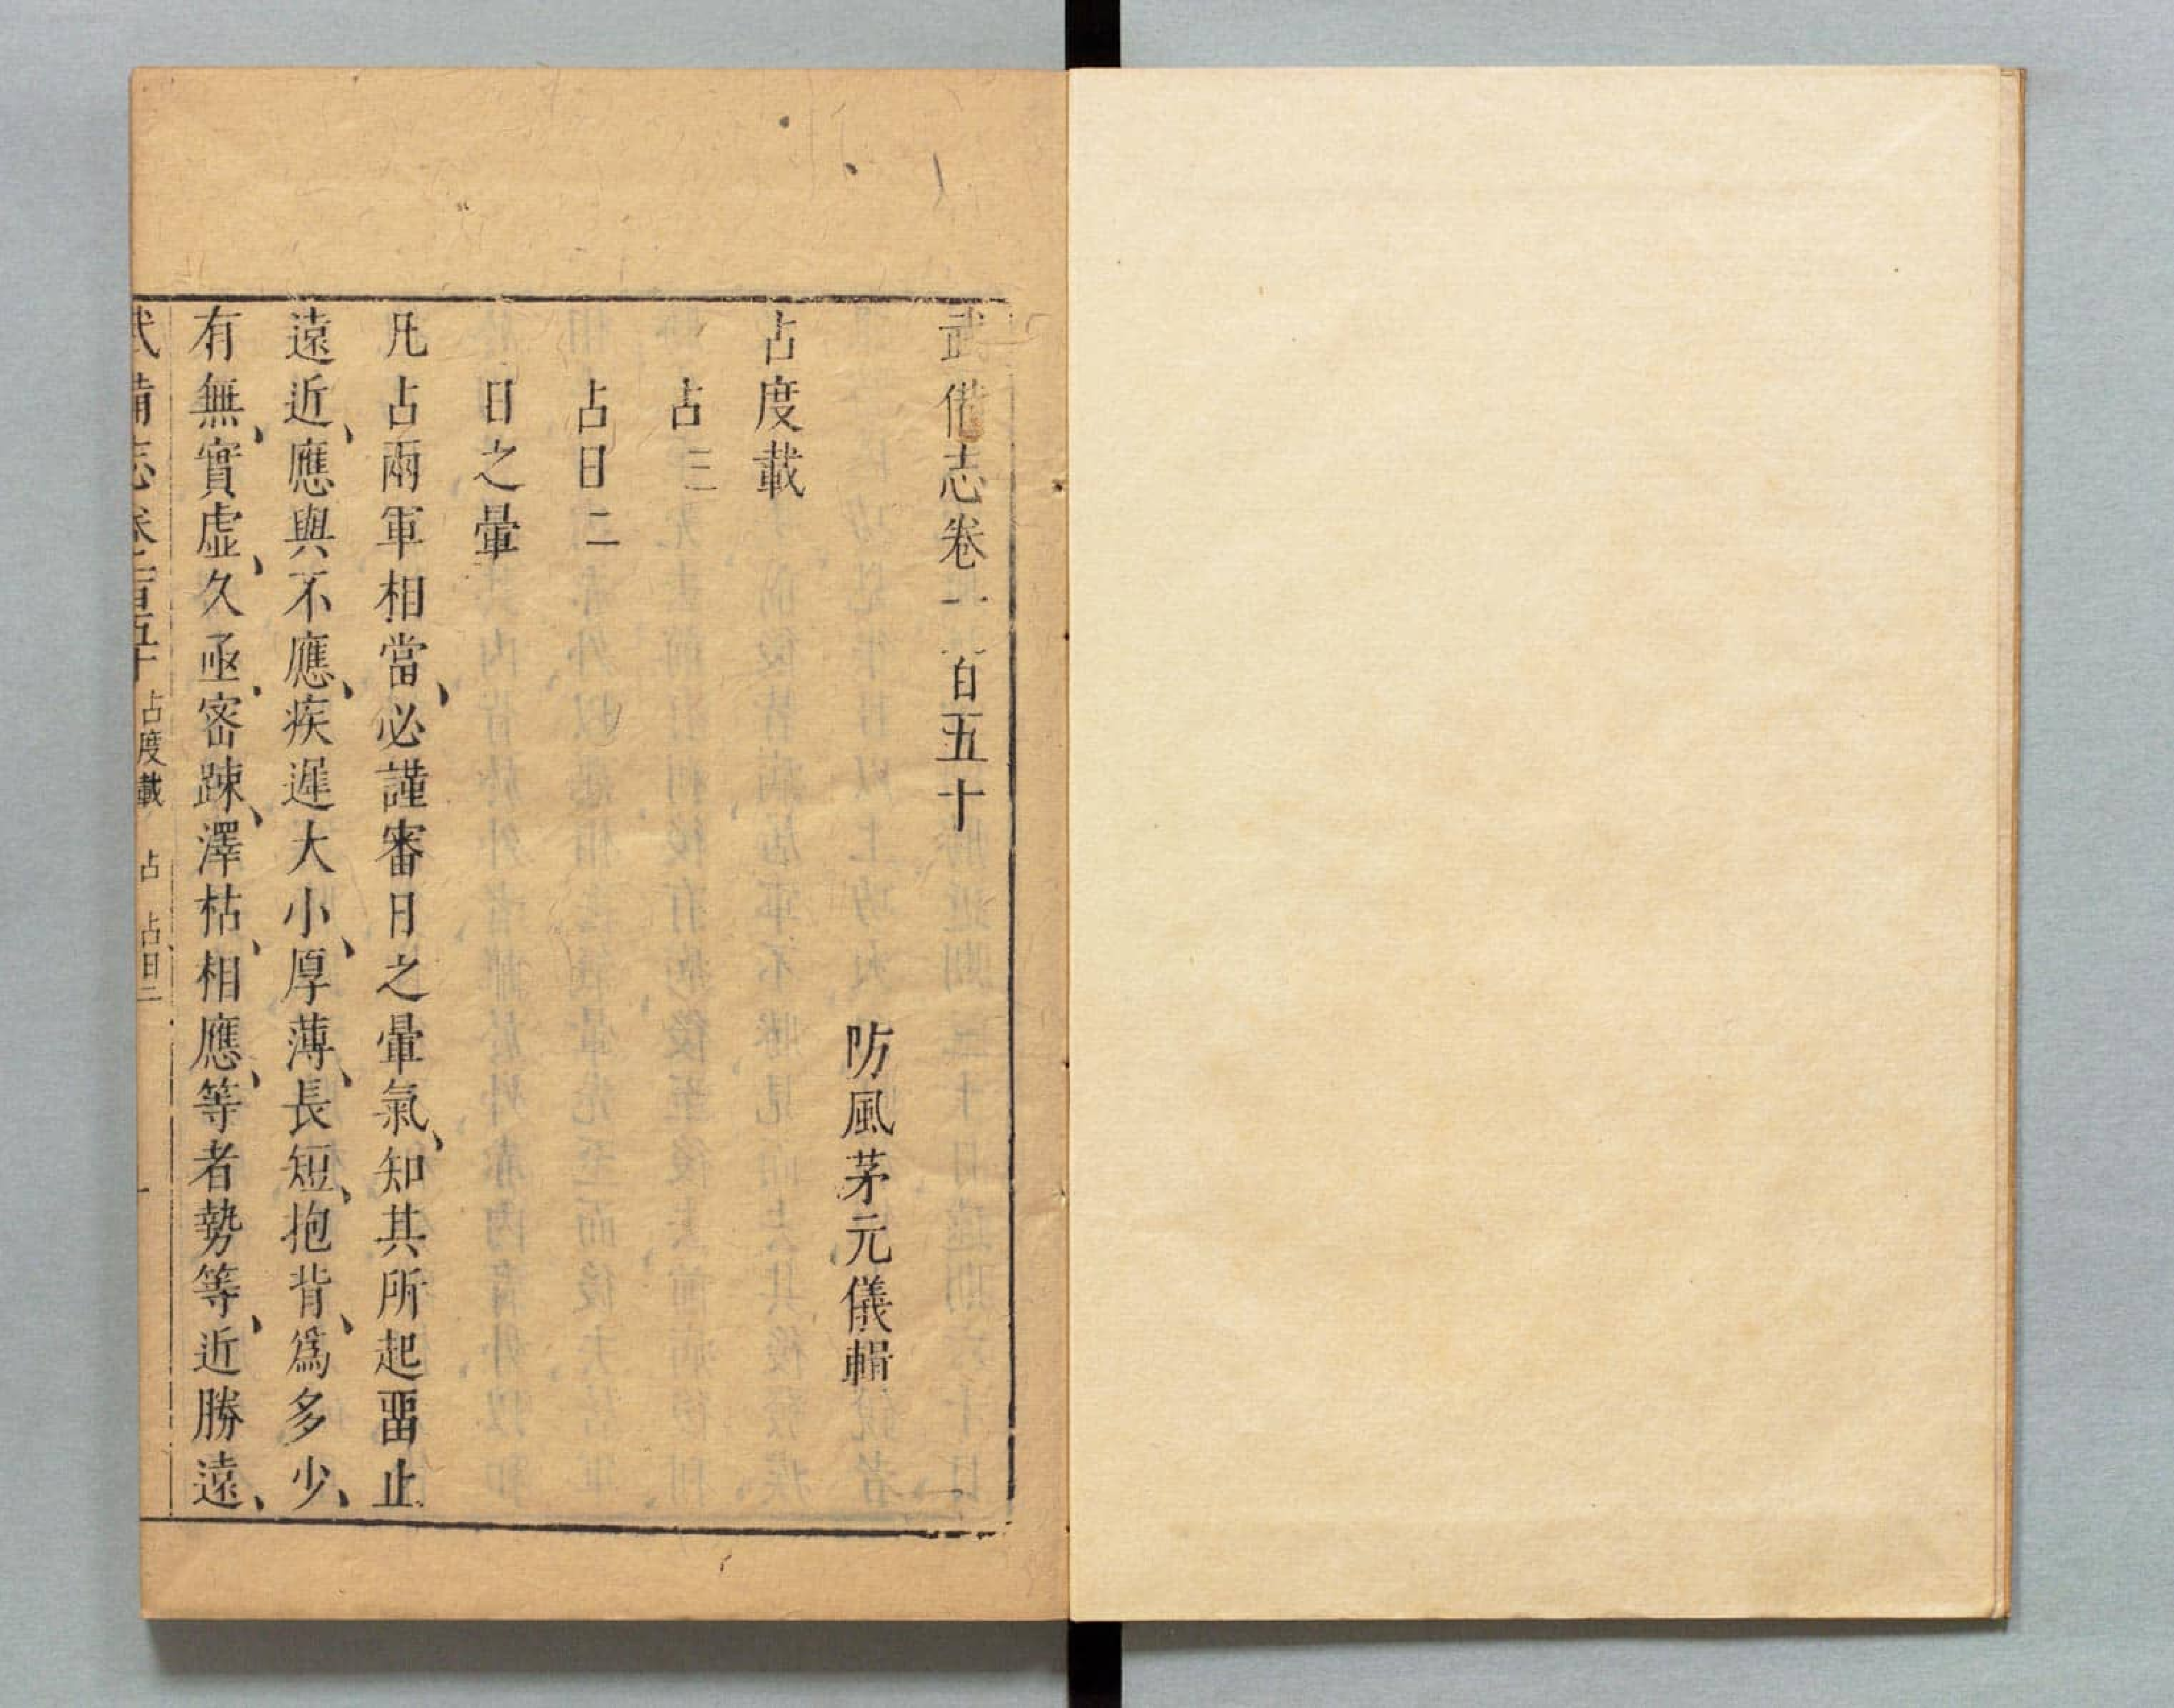 武備志卷一百五十
防風茅元儀輯
占度載
占三
占日二
日之暈
凡占兩軍相當、必謹審日之暈氣、知其所起畱止
遠近、應與不應、疾遲大小、厚薄、長短、抱背、爲多少、
有無、實虛、久亟、密踈、澤枯、相應、等者勢等、近勝遠、
武備志卷一百五十 占度載 占 占日二 一